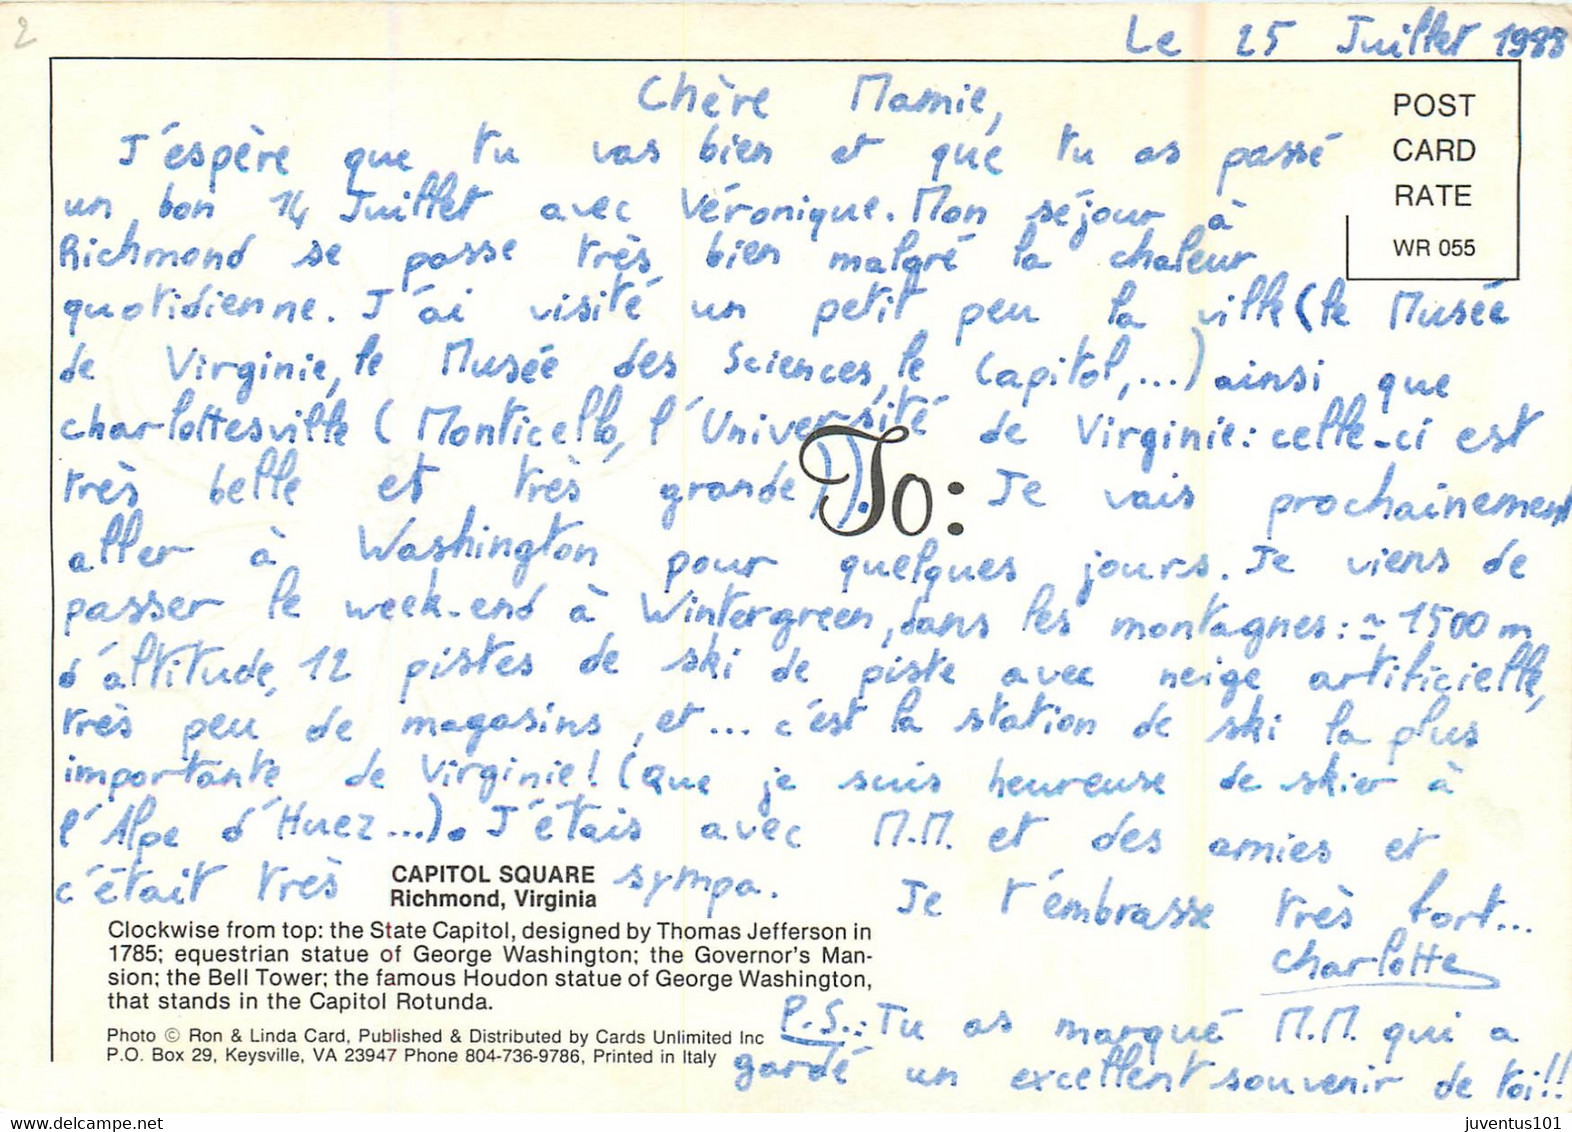 2
Le 25 Juillet 1988
POST
CARD
RATE
WR 055
Chère Mamie,
J'éspère que tu vas bien et que tu as passé
un bon 14 Juillet avec Véronique. Mon séjour à
Richmond se passe très bien malgré la chaleur
quotidienne. J'ai visité un petit peu la ville (le Musée
de Virginie, le Musée des Sciences, le Capitol,...) ainsi que
Charlottesville (Monticello, l'Université de Virginie: celle-ci est
très belle et très grande)). Je vais prochainement
To:
aller à Washington pour quelques jours. Je viens de
passer le week-end à Wintergreen, dans les montagnes: ≃ 1500 m
d'altitude, 12 pistes de ski de piste avec neige artificielle,
très peu de magasins, et... c'est la station de ski la plus
importante de Virginie! (Que je suis heureuse de skier à
l'Alpe d'Huez...). J'étais avec M.M. et des amies et
c'était très sympa. Je t'embrasse très fort...
Charlotte
CAPITOL SQUARE
Richmond, Virginia
Clockwise from top: the State Capitol, designed by Thomas Jefferson in
1785; equestrian statue of George Washington; the Governor's Man-
sion; the Bell Tower; the famous Houdon statue of George Washington,
that stands in the Capitol Rotunda.
Photo © Ron & Linda Card, Published & Distributed by Cards Unlimited Inc
P.O. Box 29, Keysville, VA 23947 Phone 804-736-9786, Printed in Italy
P.S.: Tu as marqué M.M. qui a
gardé un excellent souvenir de toi!!
juventus101